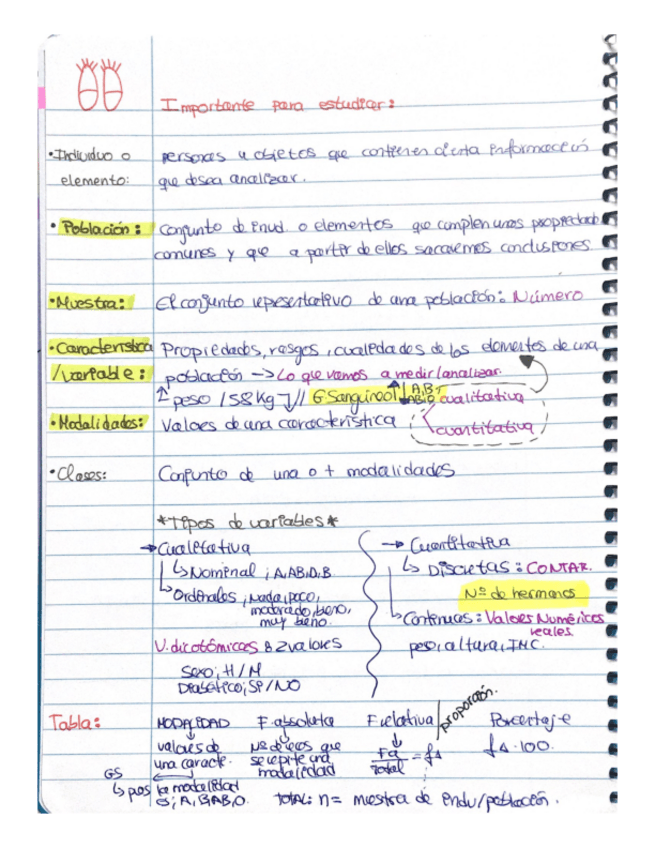 Importante para estudiar:
• Individuo o elemento: personas u objetos que contienen cierta información
que desea analizar.
• Población: Conjunto de indud. o elementos que cumplen unas propiedades
comunes y que a partir de ellos sacaremos conclusiones.
• Muestra: El conjunto representativo de una población: Número
• Característica /variable: Propiedades, rasgos, cualidades de los elementos de una
población → Lo que vamos a medir/analizar
peso / 58 Kg // G Sanguíneo A, B, AB, O cualitativa
• Modalidades: Valores de una característica cuantitativa
• Clases: Conjunto de una o + modalidades
*Tipos de variables*
→ Cualitativa
↳ Nominal; A, AB, O, B
↳ Ordinales; Nada, poco,
moderado, bueno,
muy bueno.
V. dicotómicos 2 valores
Sexo; H/M
Diabético; SI/NO
→ Cuantitativa
↳ Discretas: CONTAR.
Nº de hermanos
↳ Continuas: Valores Numéricos
reales.
peso, altura, IMC.
Tabla: MODALIDAD F. absoluta F relativa / proporción. Porcentaje
valores de una caracte. Nº de veces que se repite una modalidad Fa/total = f1 f1·100.
GS
↳ pos la modalidad
es; A, B, AB, O. TOTAL: n = muestra de indu/población.